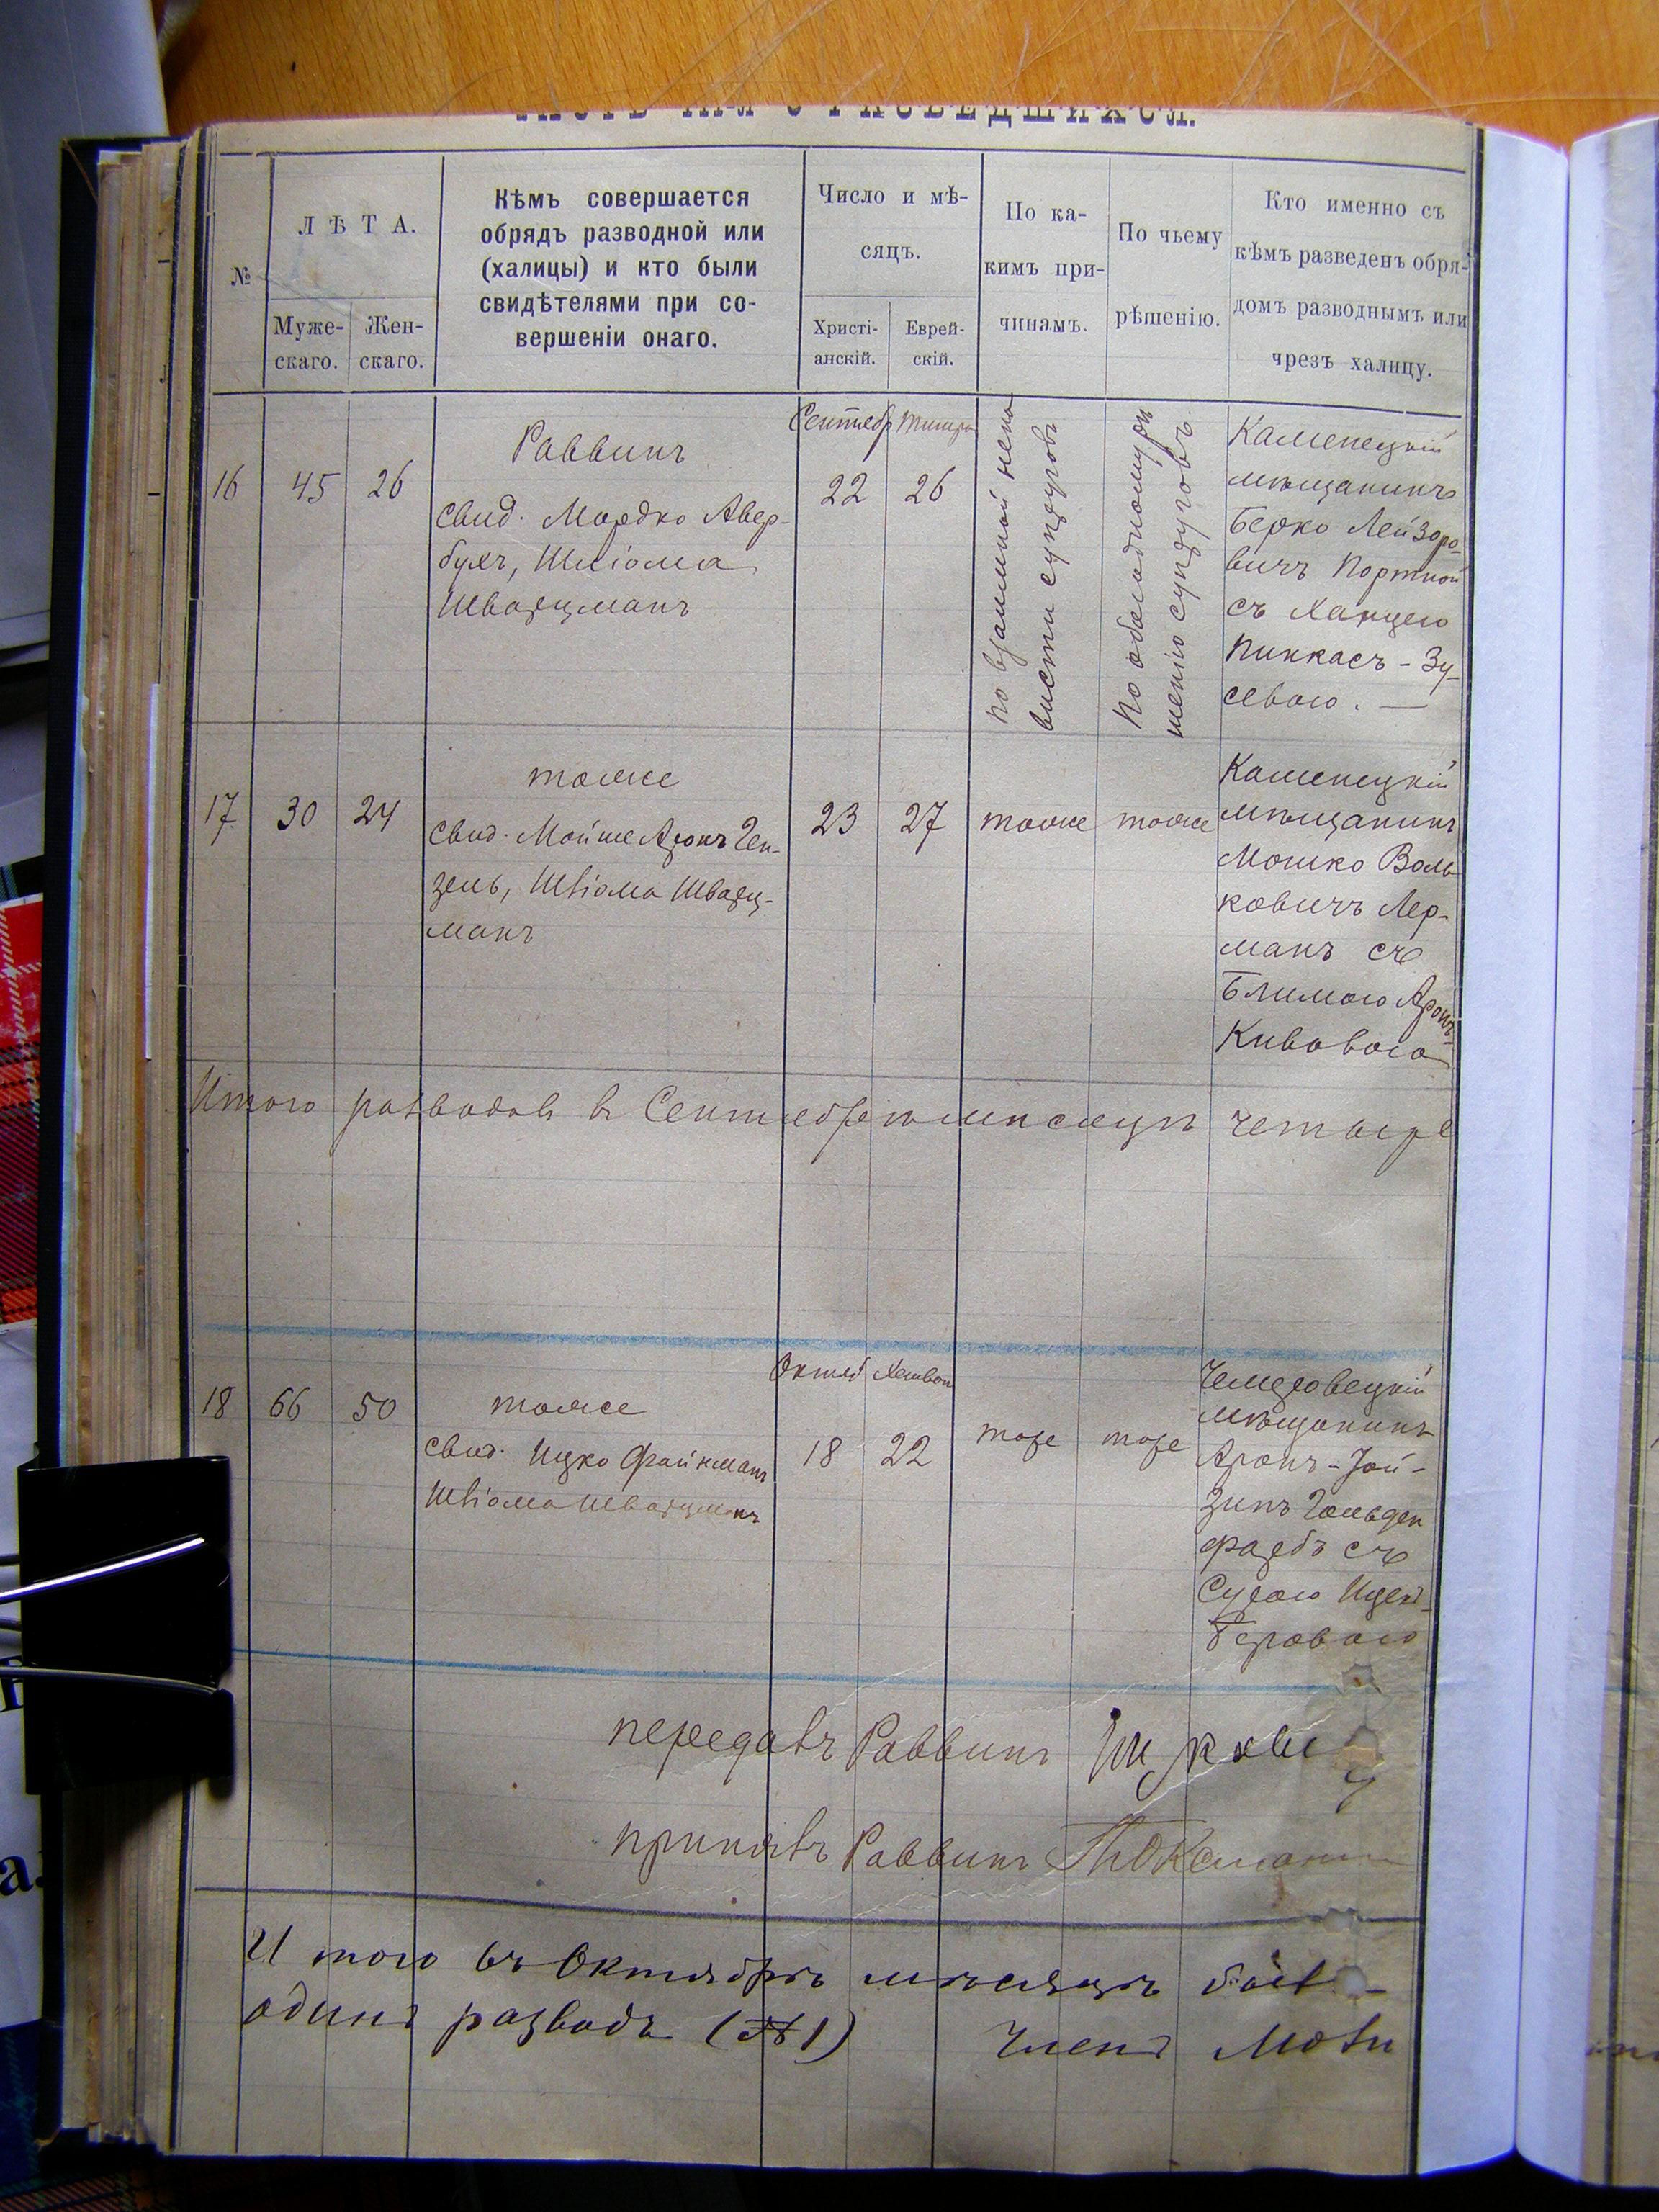 О РАЗВЕДШИХСЯ.
№
ЛѢТА.
Муже-
скаго.
Жен-
скаго.
Кѣмъ совершается
обрядъ разводной или
(халицы) и кто были
свидѣтелями при со-
вершеніи онаго.
Число и мѣ-
сяцъ.
Христі-
анскій.
Еврей-
скій.
По ка-
кимъ при-
чинамъ.
По чьему
рѣшенію.
Кто именно съ
кѣмъ разведенъ обря-
домъ разводнымъ или
чрезъ халицу.
16
45
26
Раввинъ
свид. Мордко Авер-
бухъ, Шліома
Шварцманъ
Сентебр
22
Тишри
26
По взаимной нена
висти супруговъ
По обоюдному рѣ
шенію супруговъ
Каменецкій
мѣщанинъ
Берко Лейзоро-
вичъ Портной
съ Ханцею
Пинкасъ - Зу-
севою. —
17
30
24
тоже
свид. Мойше Аронъ Ген-
зель, Шліома Шварц-
манъ
23
27
тоже
тоже
Каменецкій
мѣщанинъ
Мошко Воль
ковичъ Лер-
манъ съ
Блимою Аронъ-
Кивовою
Итого разводовъ в Сентебрѣ мѣсяцѣ четыре
18
66
50
тоже
свид. Ицко Файнманъ
Шліома Шварцманъ
Октеб
18
Хешван
22
тоже
тоже
Чемеровецкій
мѣщанинъ
Аронъ - Зай-
Гольден
фарбъ съ
Сурою Ицек-
Беровою
передалъ Раввинъ
принялъ Раввинъ
Итого въ Октябрѣ мѣсяцѣ былъ
одинъ разводъ (№1)
Членъ